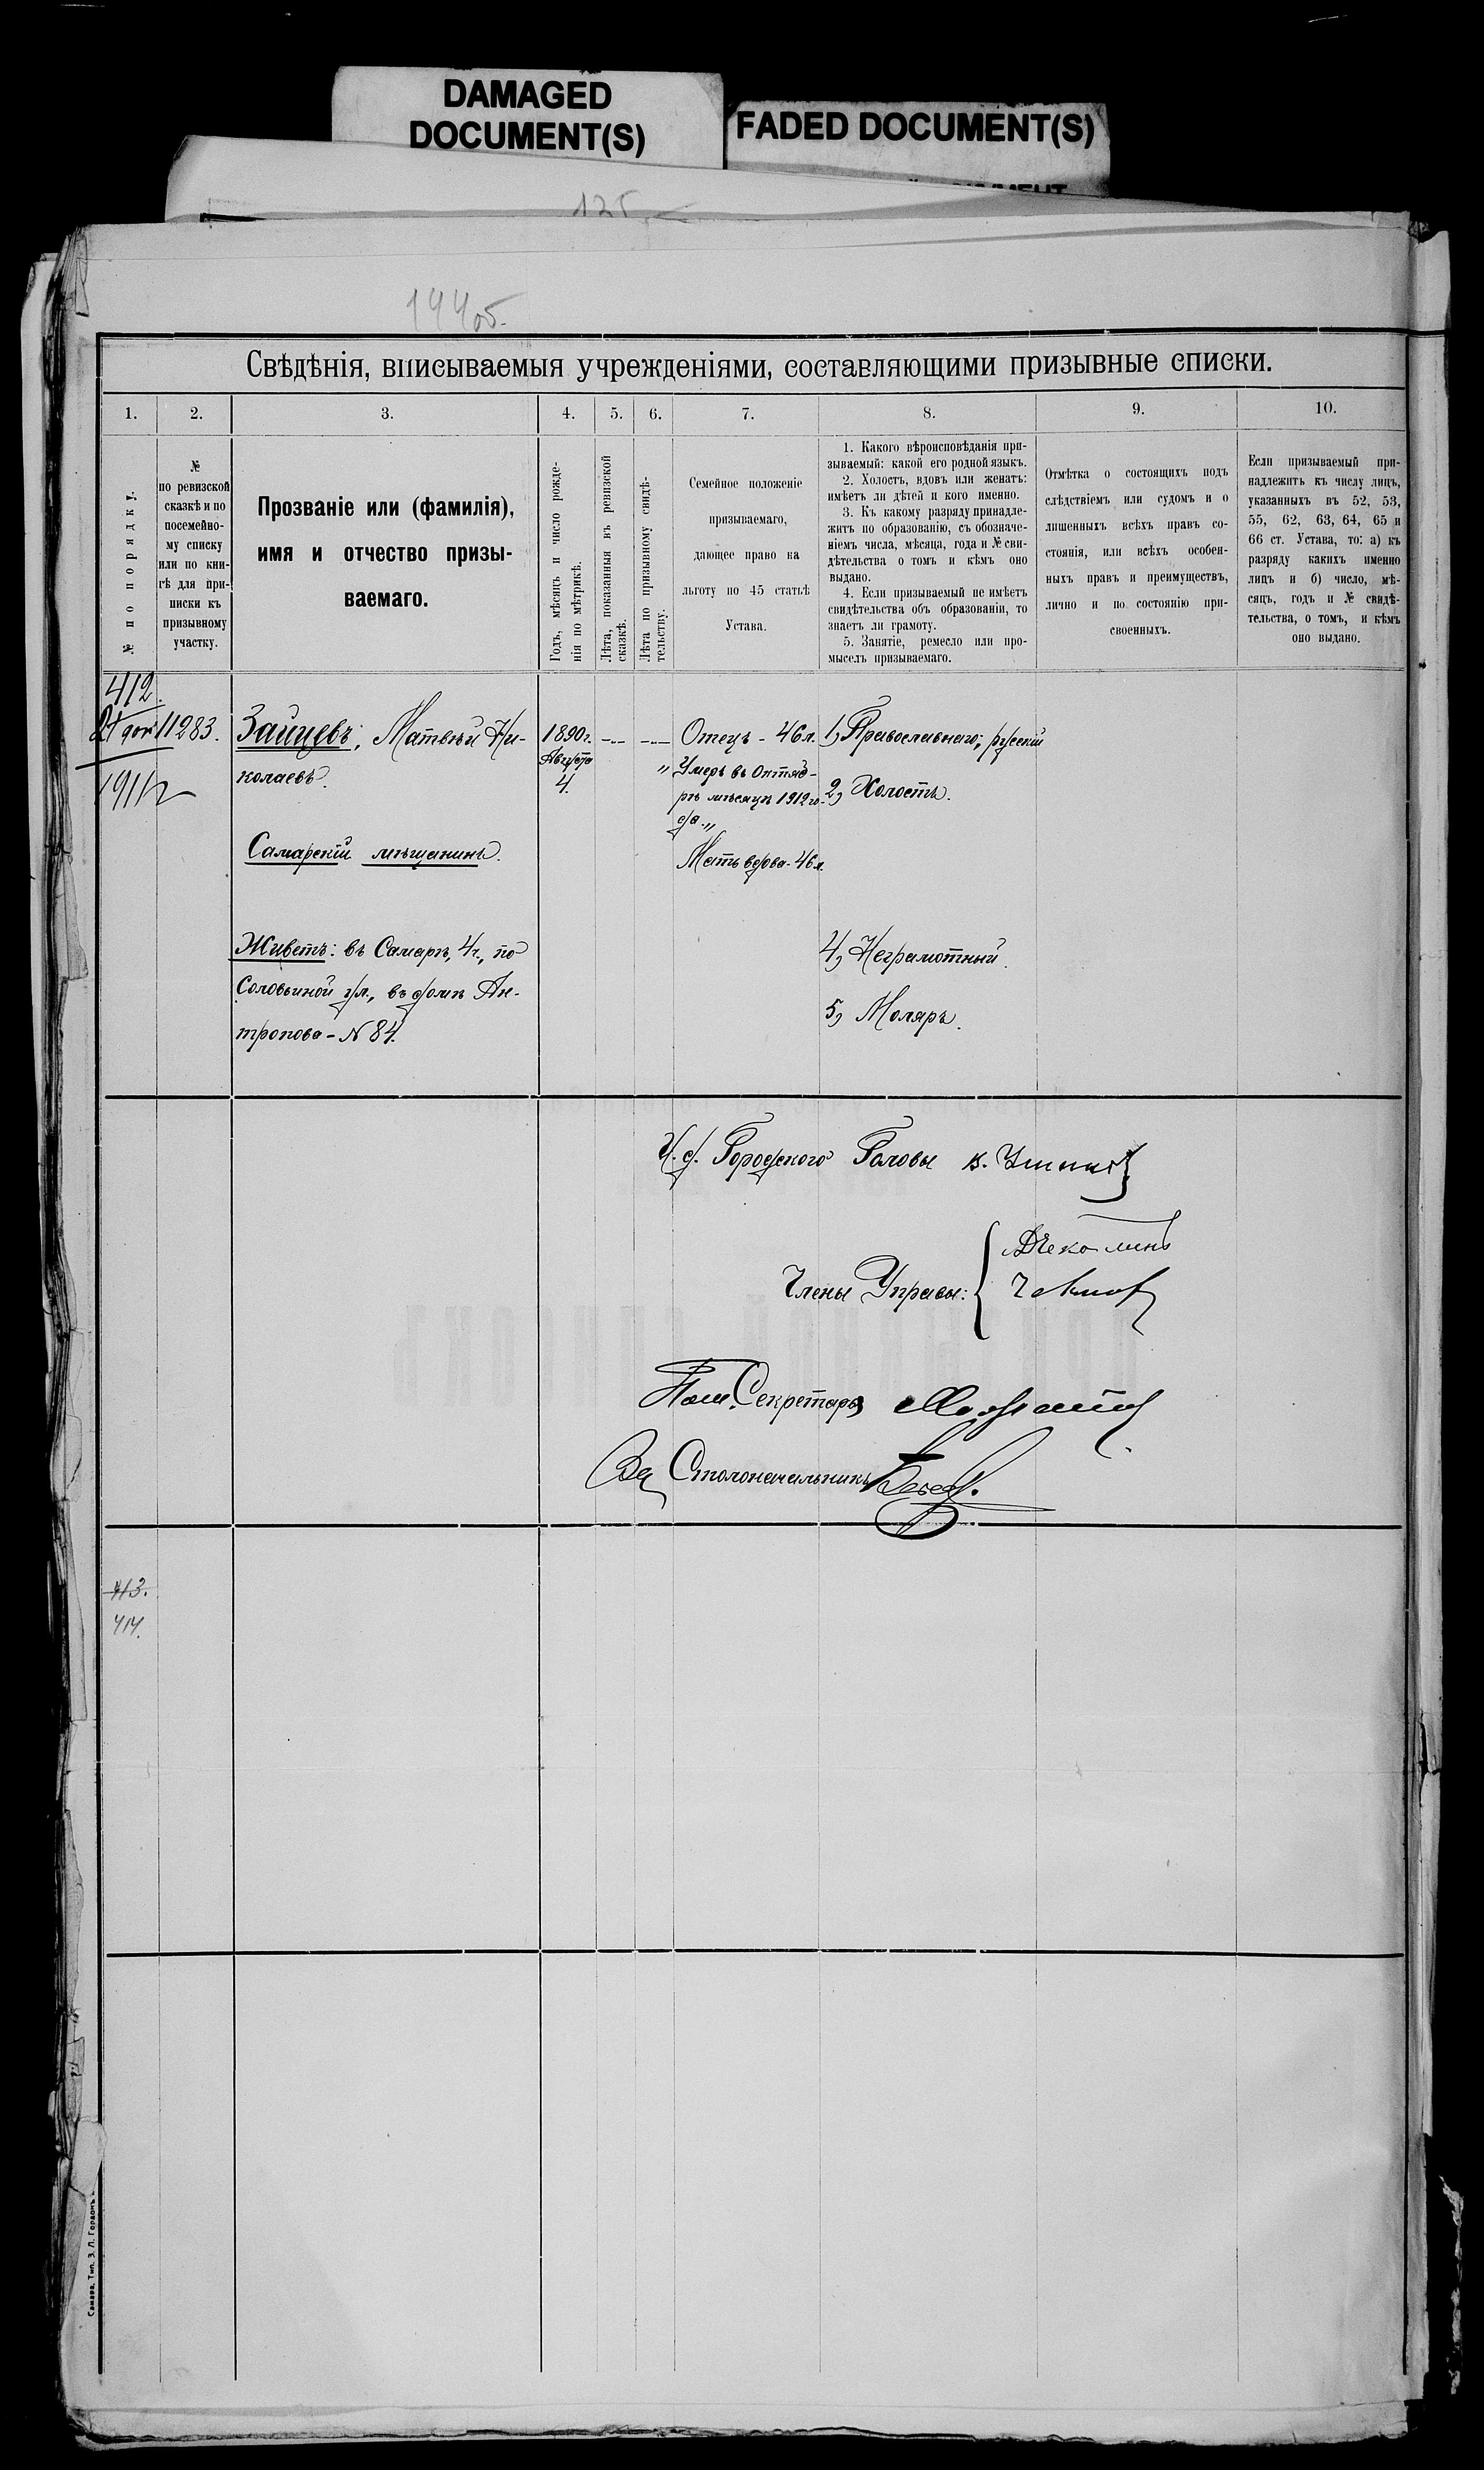 DAMAGED
DOCUMENT(S)
FADED DOCUMENT(S)
144об.
Свѣдѣнія, вписываемыя учрежденіями, составляющими призывные списки.
1. 2. 3. 4. 5. 6. 7. 8. 9. 10.
№ по порядку.
№
по ревизской
сказкѣ и по
посемейно-
му списку
или по кни-
гѣ для при-
писки къ
призывному
участку.
Прозваніе или (фамилія),
имя и отчество призы-
ваемаго.
Годъ, мѣсяцъ и число рожде-
нія по метрикѣ.
Лѣта, показанныя въ ревизской
сказкѣ.
Лѣта по призывному свидѣ-
тельству.
Семейное положеніе
призываемаго,
дающее право на
льготу по 45 статьѣ
Устава.
1. Какого вѣроисповѣданія при-
зываемый: какой его родной языкъ.
2. Холостъ, вдовъ или женатъ:
имѣетъ ли дѣтей и кого именно.
3. Къ какому разряду принадле-
житъ по образованію, съ обозначе-
ніемъ числа, мѣсяца, года и № сви-
дѣтельства о томъ и кѣмъ оно
выдано.
4. Если призываемый не имѣетъ
свидѣтельства объ образованіи, то
знаетъ ли грамоту.
5. Занятіе, ремесло или про-
мыселъ призываемаго.
Отмѣтка о состоящихъ подъ
слѣдствіемъ или судомъ и о
лишенныхъ всѣхъ правъ со-
стоянія, или всѣхъ особен-
ныхъ правъ и преимуществъ,
лично и по состоянію при-
своенныхъ.
Если призываемый при-
надлежитъ къ числу лицъ,
указанныхъ въ 52, 53,
55, 62, 63, 64, 65 и
66 ст. Устава, то: а) къ
разряду какихъ именно
лицъ и б) число, мѣ-
сяцъ, годъ и № свидѣ-
тельства, о томъ, и кѣмъ
оно выдано.
412.
1911г
11283.
Зайцевъ, Матвѣй Ни-
колаевъ.
Самарскій мѣщанинъ.
Живетъ: въ Самарѣ, 4ч., по
Соловьиной ул., въ домѣ Ан-
тропова - N 84.
1890г.
Августа
4.
Отецъ - 46 л.
„Умеръ въ Октяб-
рѣ мѣсяцѣ 1912 го-
да.„
Мать вдова - 46 л.
1, Православнаго; русскій
2, Холостъ.
4, Неграмотный.
5, Моляръ.
И. д. Городского Головы
Члены Управы:
Пом. Секретаря
За Столоначальника
413.
414.
Самара, Тип. З. Л. Гордонъ